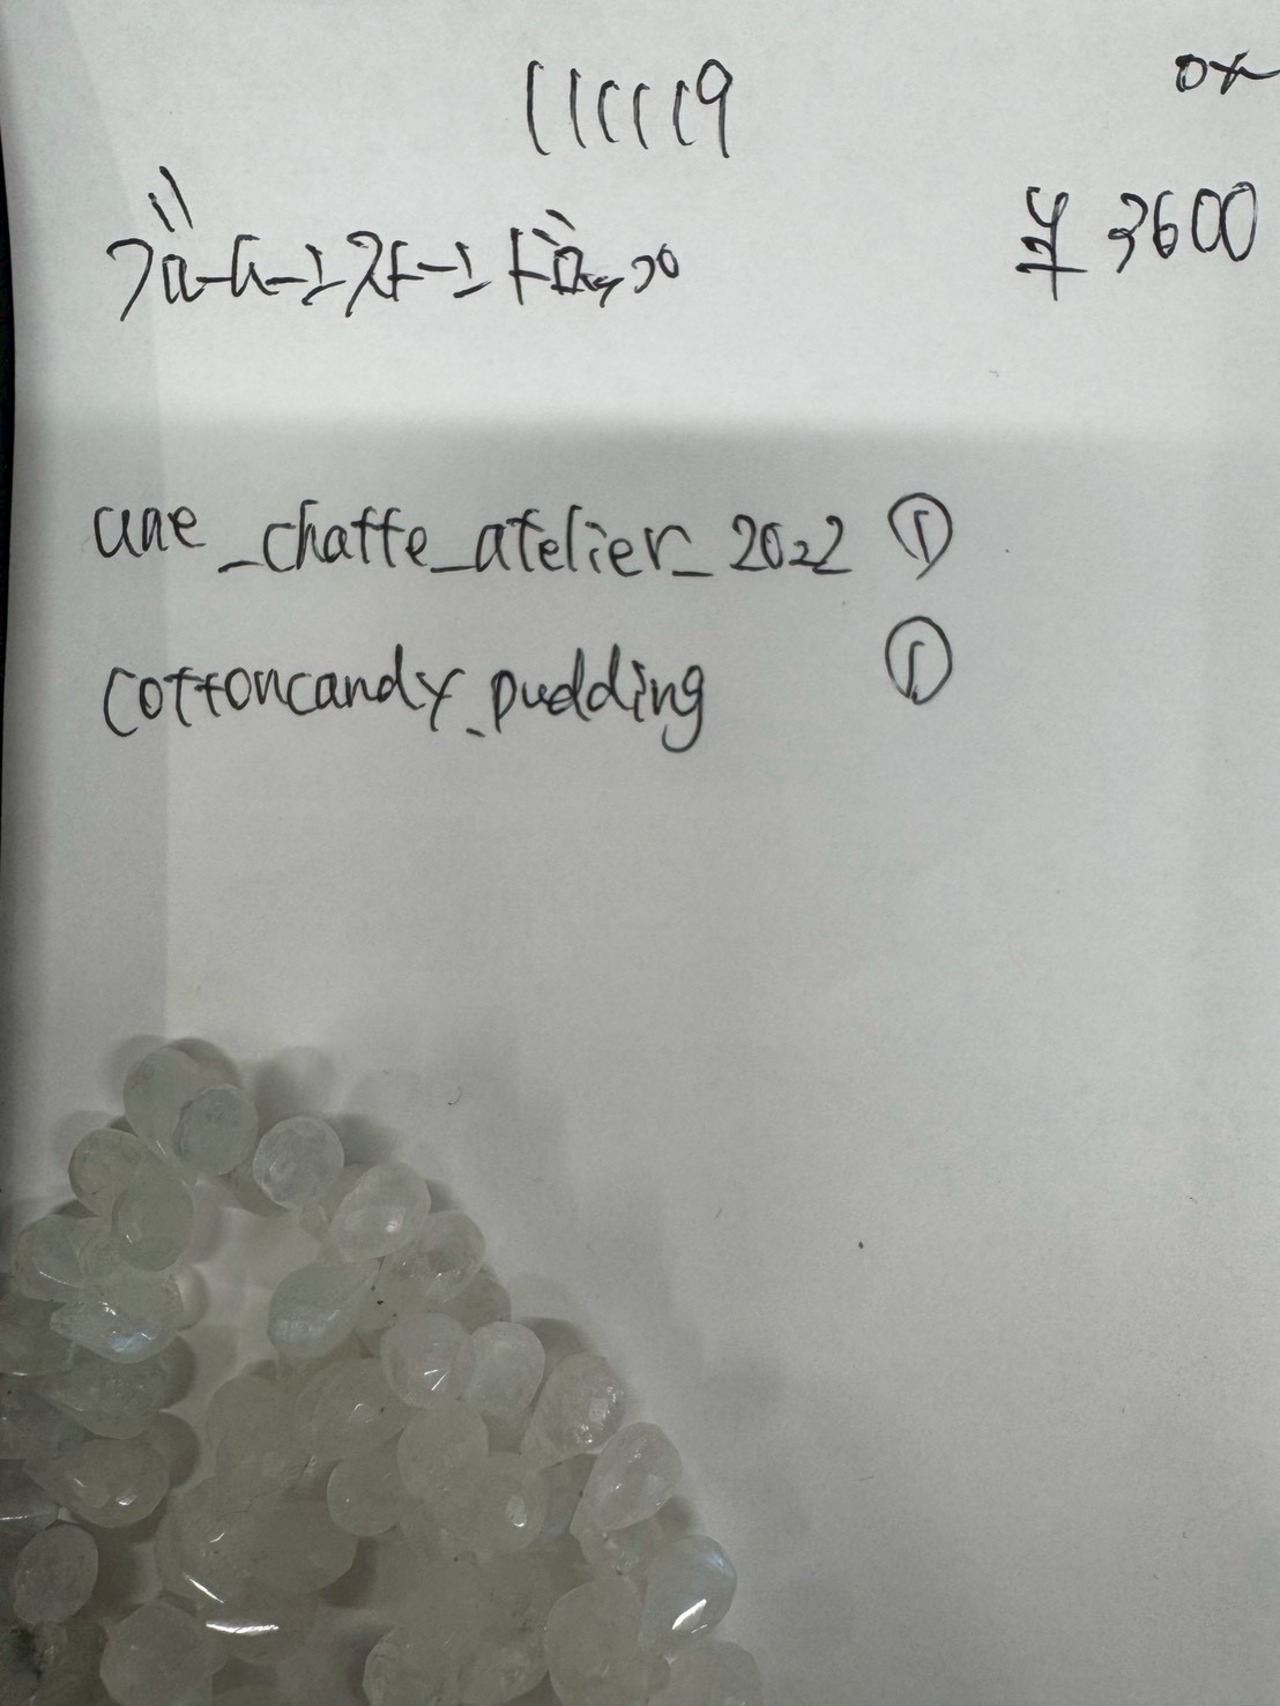 111119
ブルームーンストーンドロップ
¥3600
une_chatte_atelier_2022 ①
cottoncandy_pudding ①